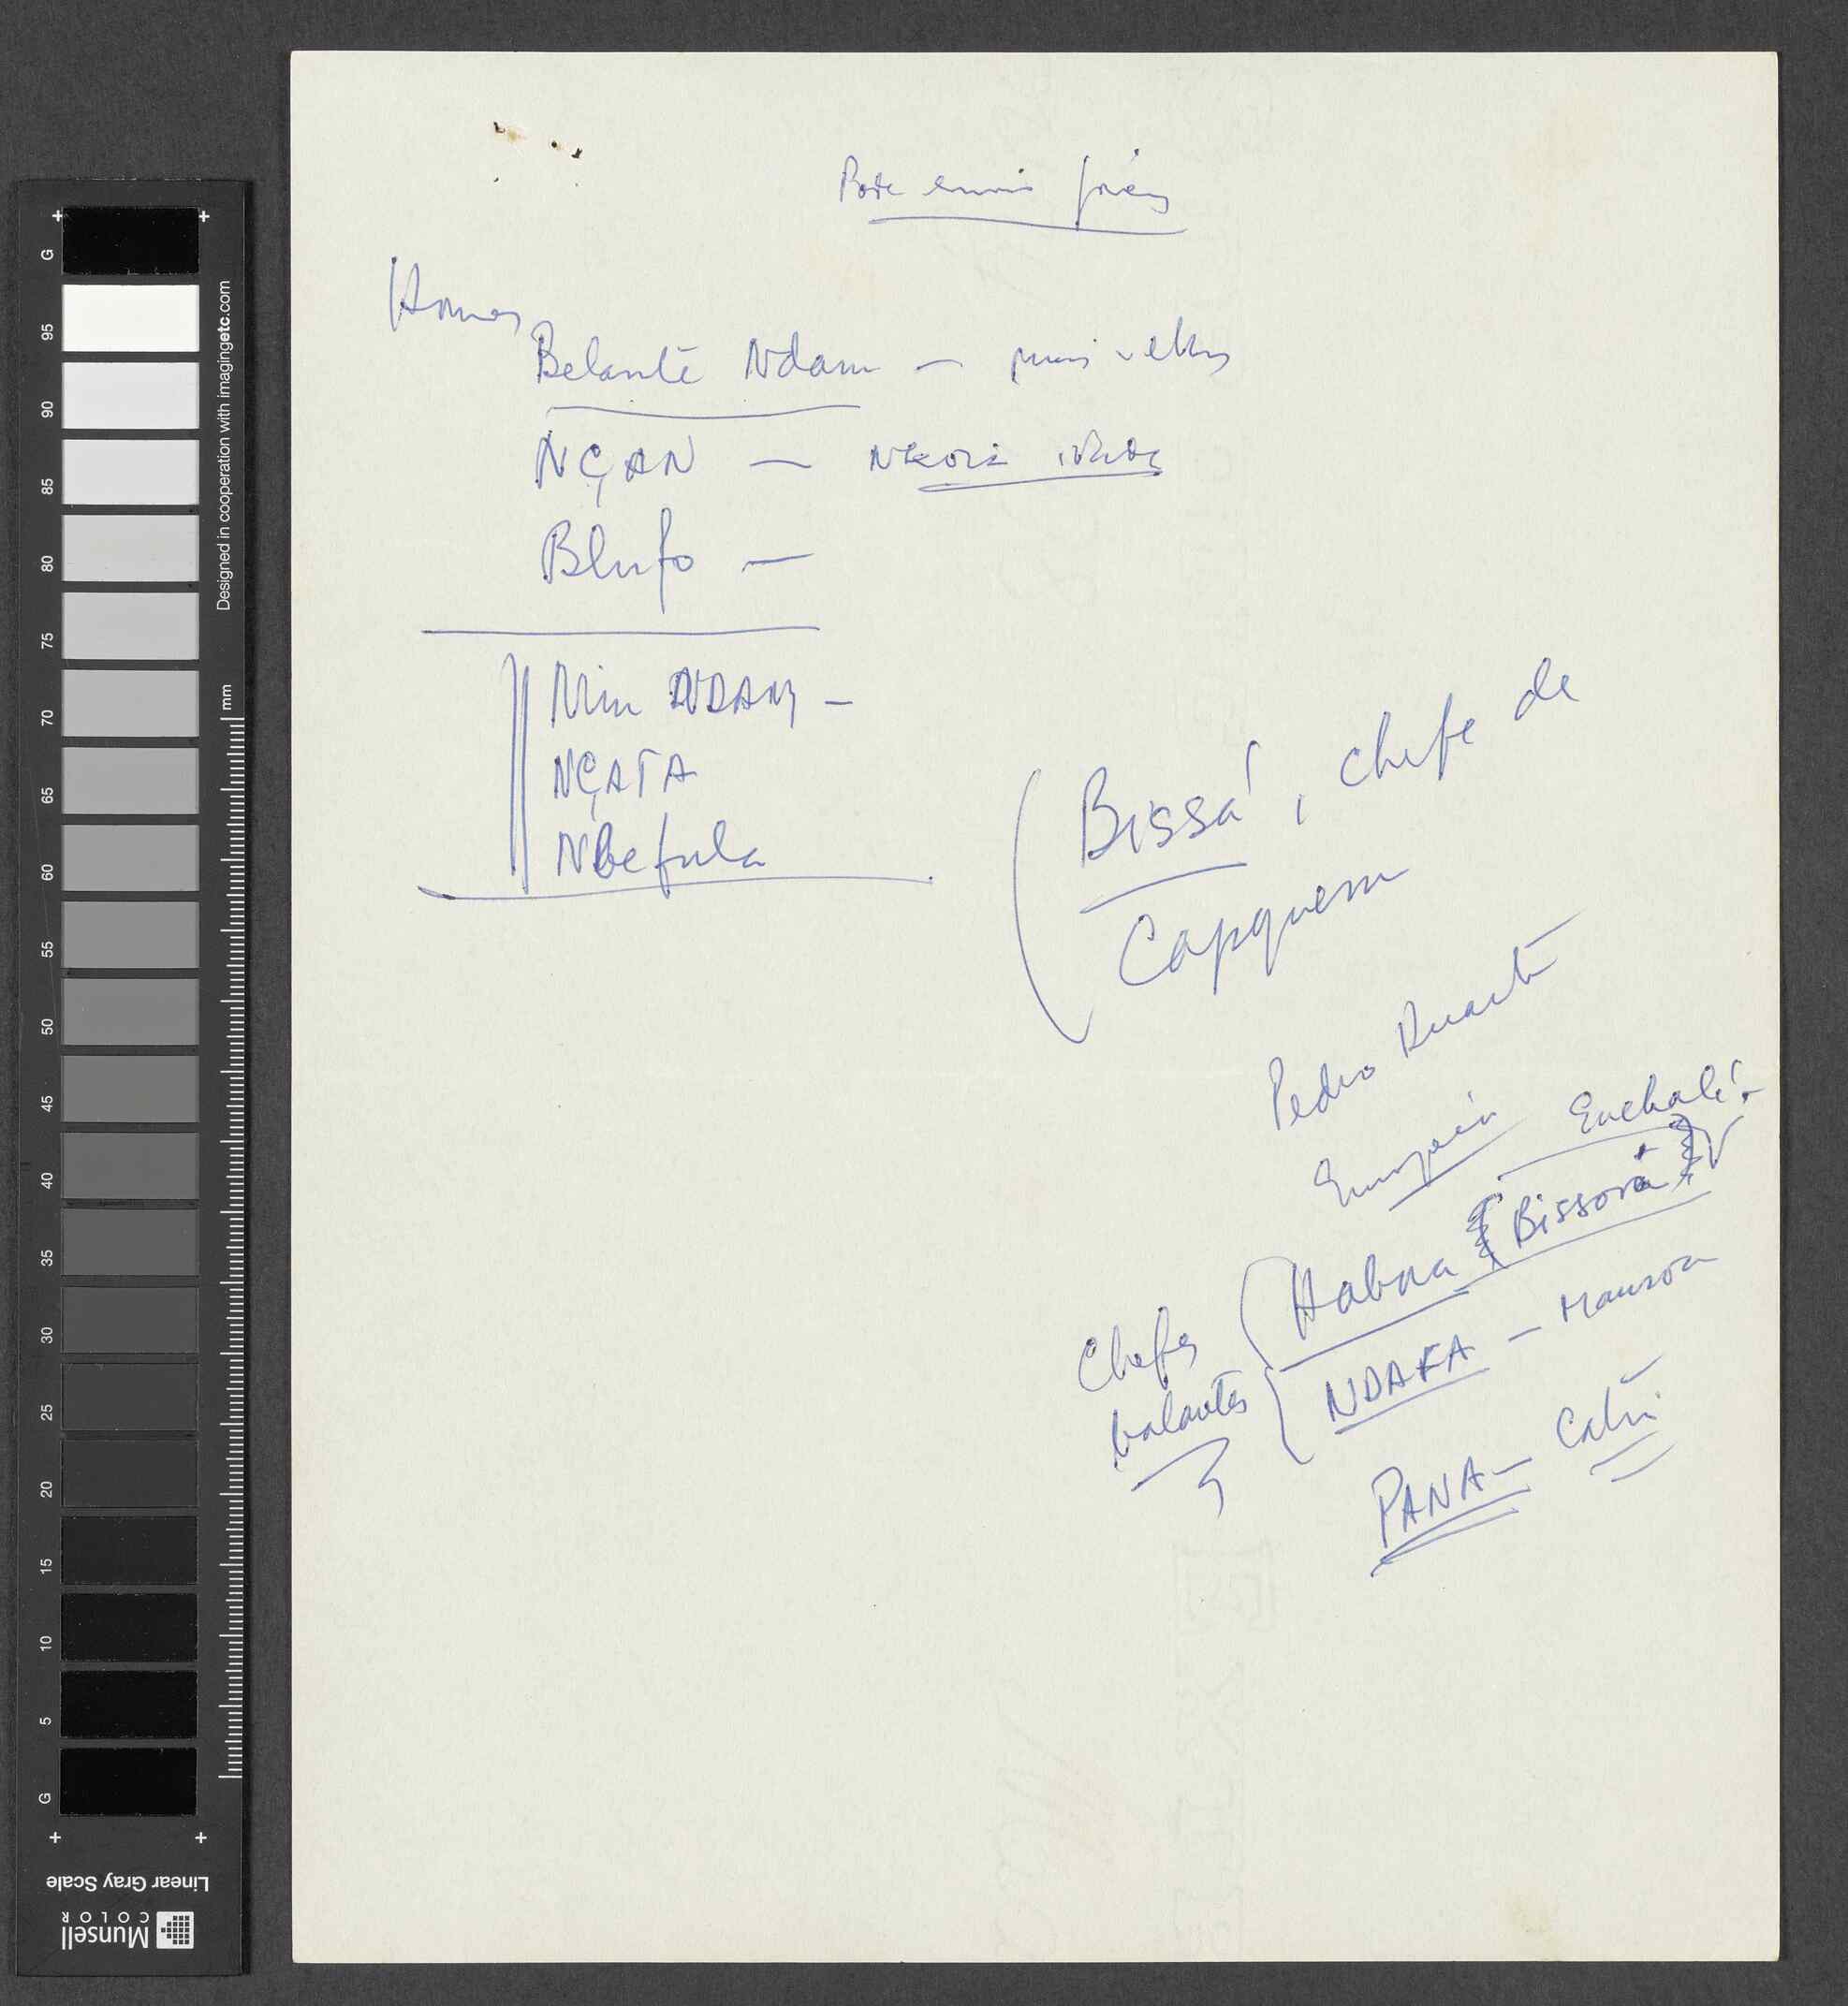 Homens
Belante Ndam — mais velhos
NÇAN —
Blufo —
Nin NDAM —
NÇATA
Nbefula
Bissá, chefe de
Capquem
Pedro Duarte
Enxalé
Habna (Bissorã)
Chefes
balantes
NDAFA — Mansoa
PANA — Catió
G
95
90
85
80
75
70
65
60
55
50
45
40
35
30
25
20
15
10
5
G
mm
Designed in cooperation with imagingetc.com
Linear Gray Scale
Munsell
COLOR